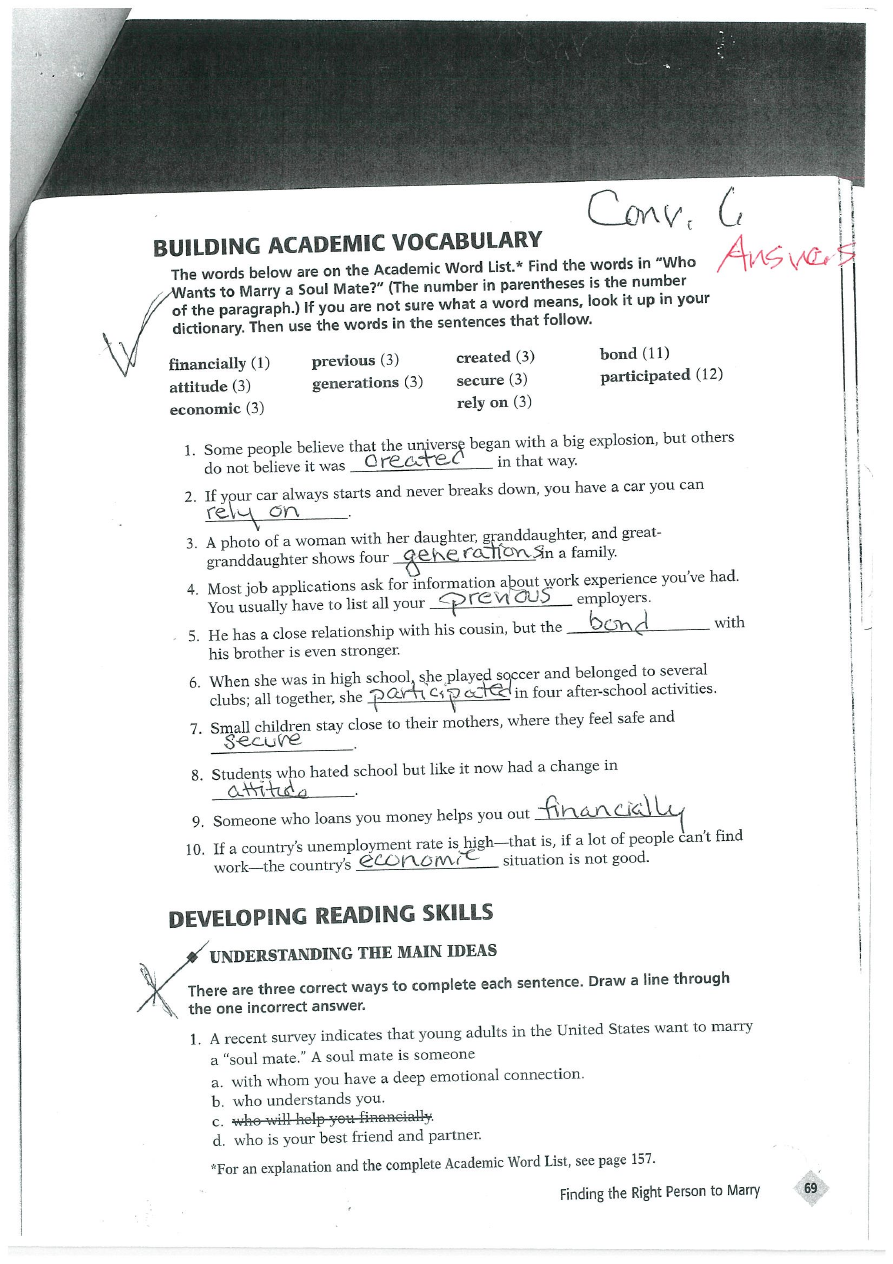 Conv. 6
Answers
BUILDING ACADEMIC VOCABULARY
The words below are on the Academic Word List.* Find the words in “Who
Wants to Marry a Soul Mate?” (The number in parentheses is the number
of the paragraph.) If you are not sure what a word means, look it up in your
dictionary. Then use the words in the sentences that follow.
financially (1) previous (3) created (3) bond (11)
attitude (3) generations (3) secure (3) participated (12)
economic (3) rely on (3)
1. Some people believe that the universe began with a big explosion, but others
do not believe it was created in that way.
2. If your car always starts and never breaks down, you have a car you can
rely on.
3. A photo of a woman with her daughter, granddaughter, and great-
granddaughter shows four generations in a family.
4. Most job applications ask for information about work experience you’ve had.
You usually have to list all your previous employers.
5. He has a close relationship with his cousin, but the bond with
his brother is even stronger.
6. When she was in high school, she played soccer and belonged to several
clubs; all together, she participated in four after-school activities.
7. Small children stay close to their mothers, where they feel safe and
secure.
8. Students who hated school but like it now had a change in
attitude.
9. Someone who loans you money helps you out financially
10. If a country’s unemployment rate is high—that is, if a lot of people can’t find
work—the country’s economic situation is not good.
DEVELOPING READING SKILLS
UNDERSTANDING THE MAIN IDEAS
There are three correct ways to complete each sentence. Draw a line through
the one incorrect answer.
1. A recent survey indicates that young adults in the United States want to marry
a “soul mate.” A soul mate is someone
a. with whom you have a deep emotional connection.
b. who understands you.
c. who will help you financially.
d. who is your best friend and partner.
*For an explanation and the complete Academic Word List, see page 157.
Finding the Right Person to Marry 69